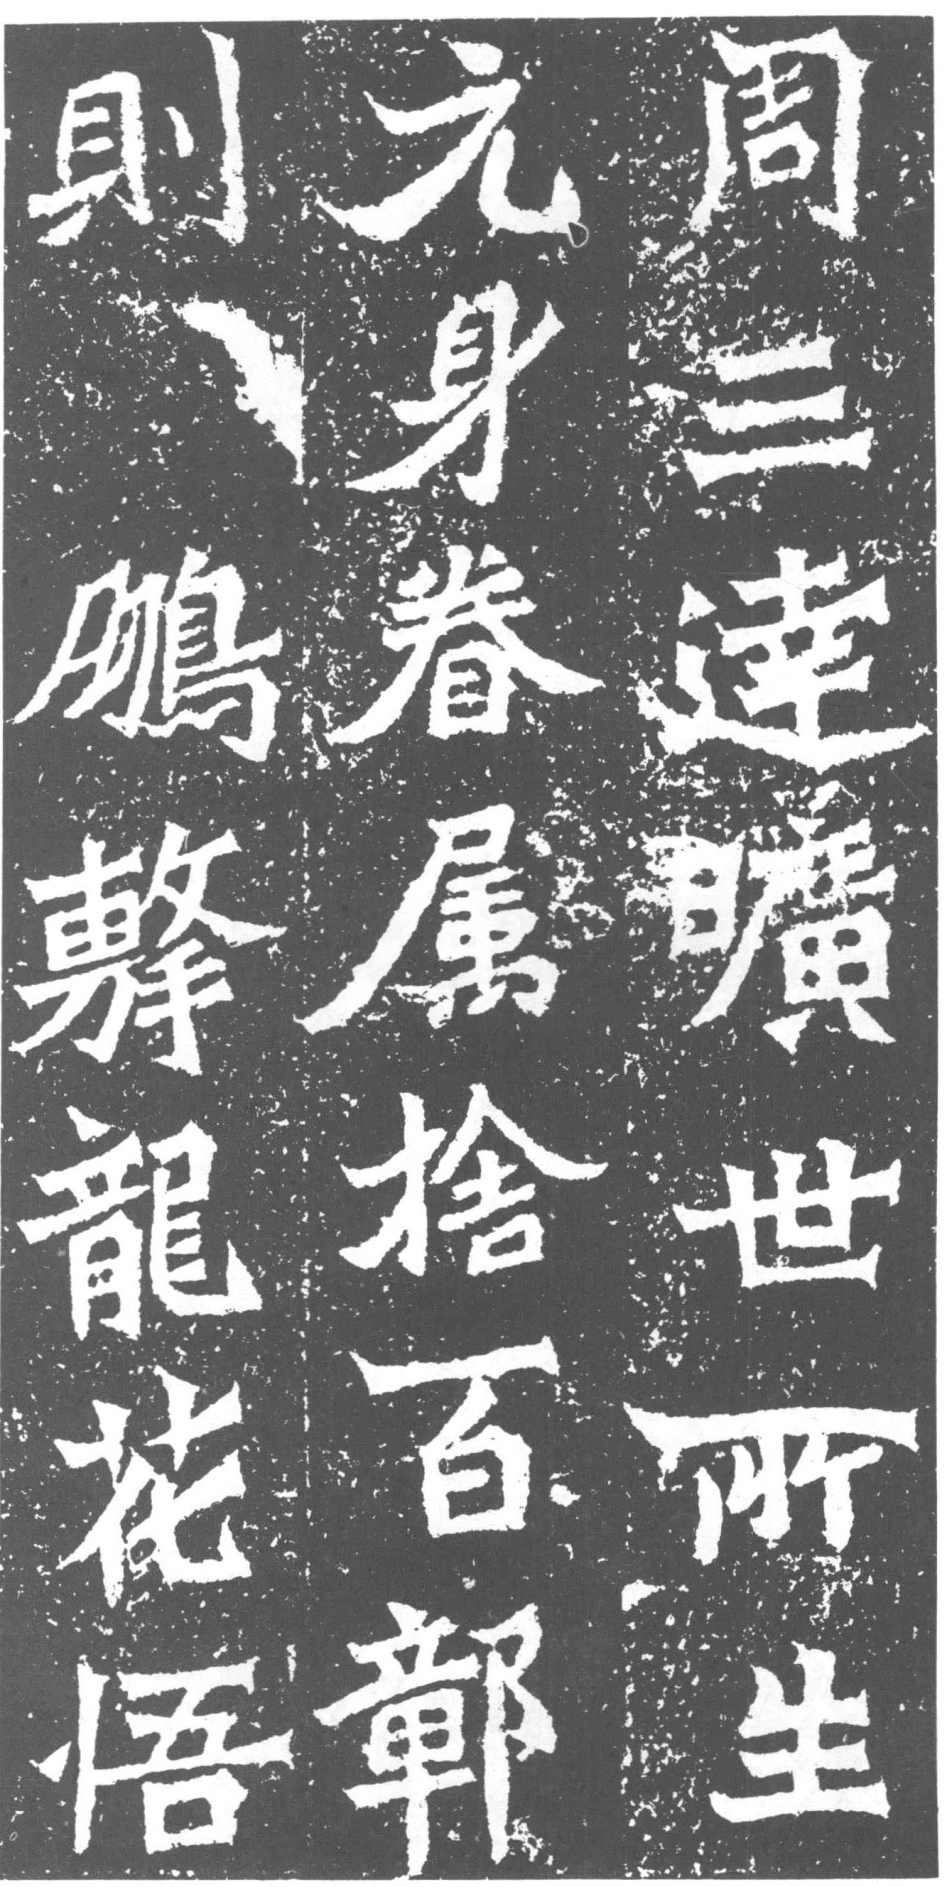 周三達曠世所生
元身眷属捨百鄣
則鵬擊龍花悟